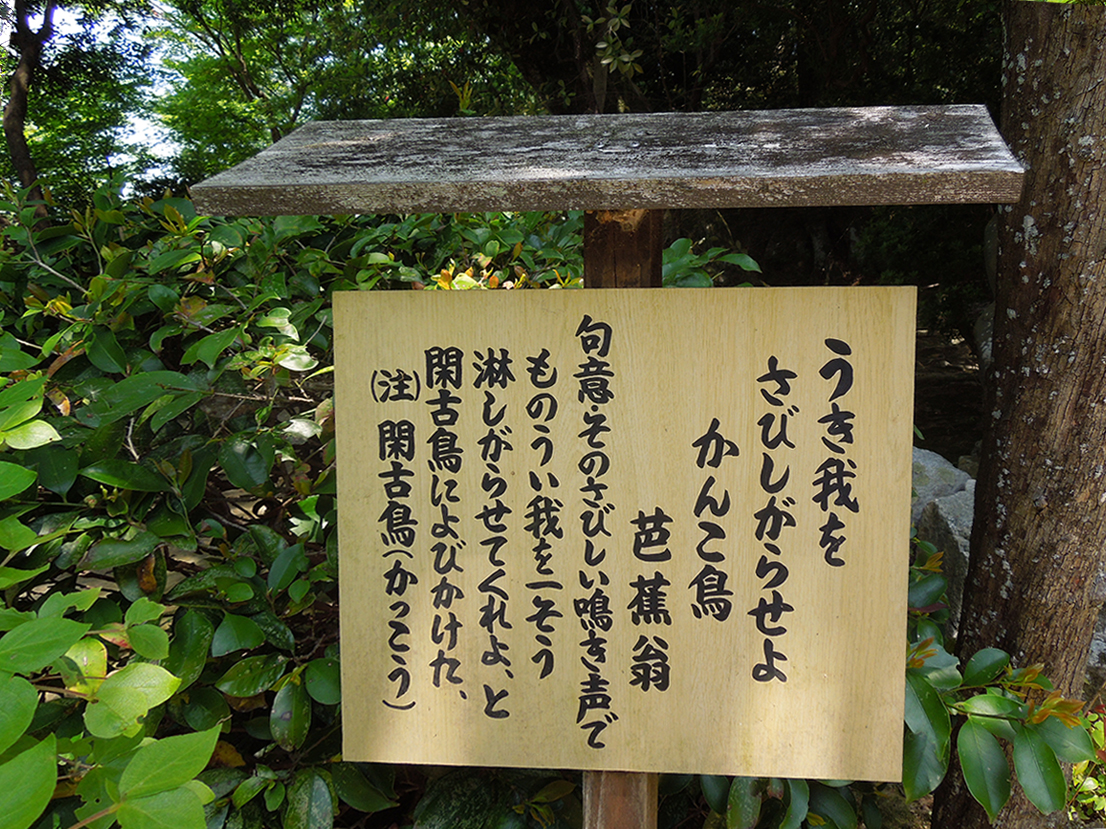 うき我を
さびしがらせよ
かんこ鳥
芭蕉翁
句意・そのさびしい鳴き声で
ものうい我を一そう
淋しがらせてくれよ、と
閑古鳥によびかけた、
(注) 閑古鳥(かっこう)